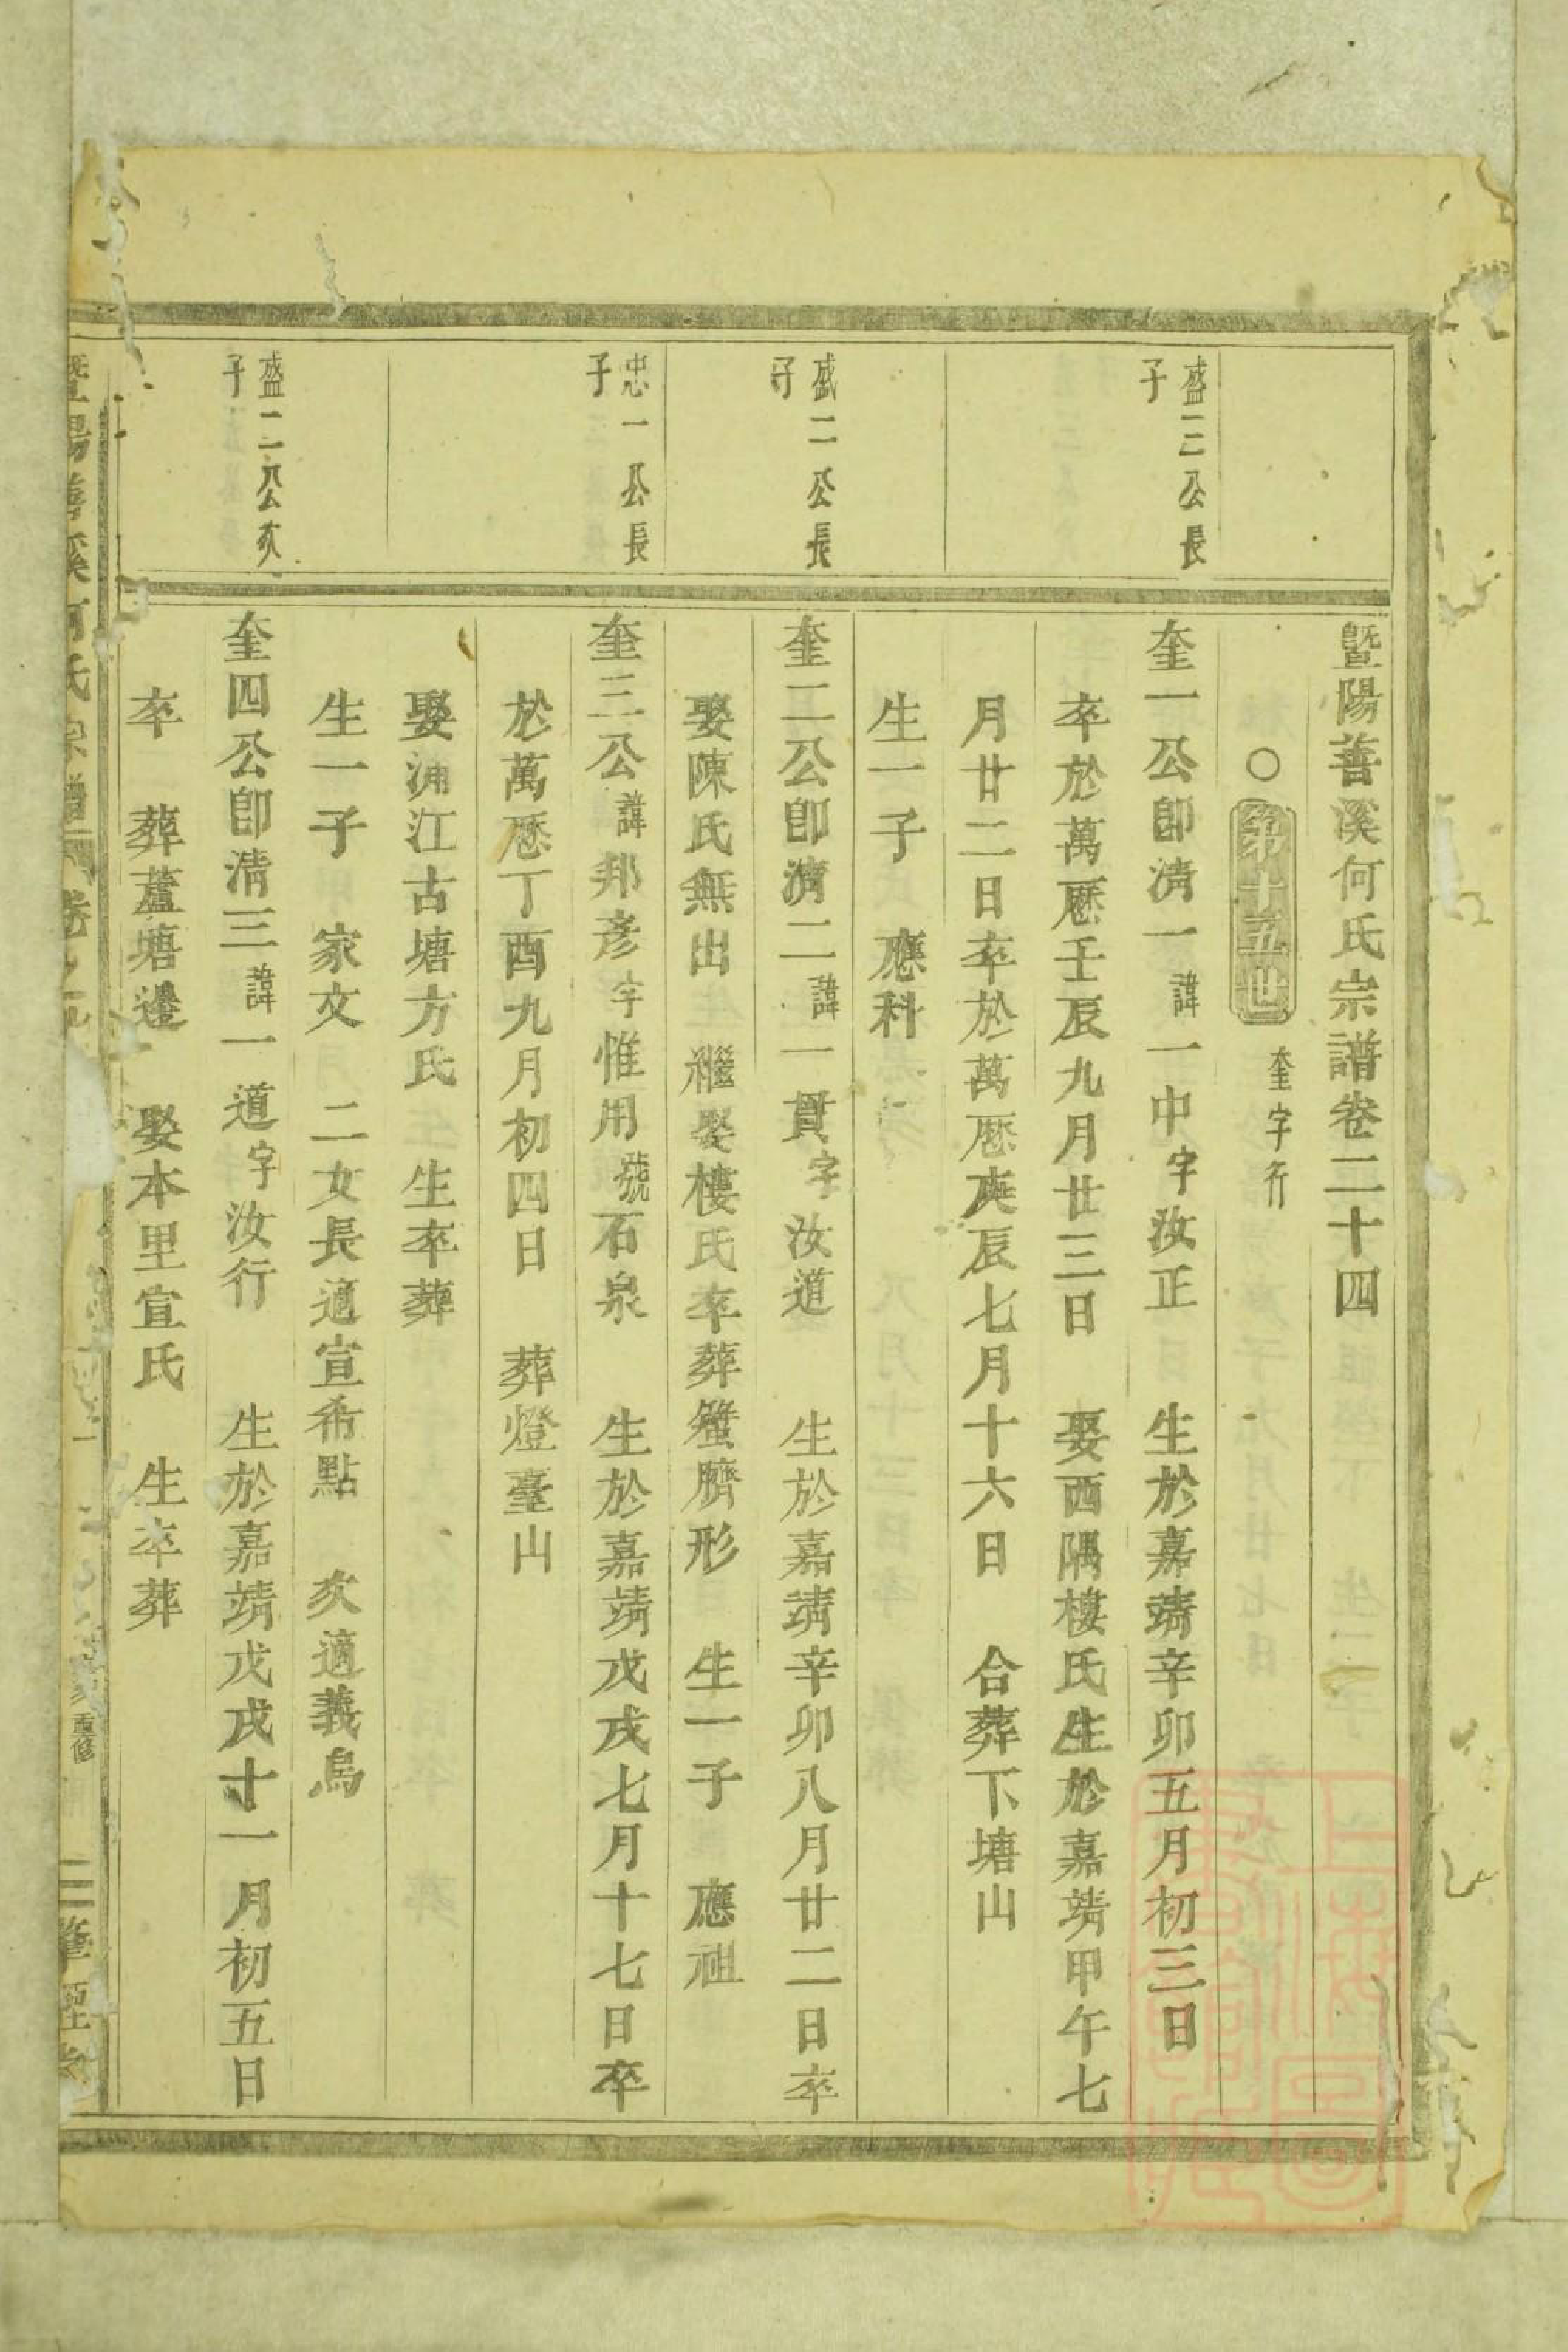 暨陽善溪何氏宗譜卷二十四
○第十五世 奎字行
盛三公長
子
奎一公卽淸一諱一中字汝正 生於嘉靖辛卯五月初三日
卒於萬厯壬辰九月廿三日 娶西隅樓氏生於嘉靖甲午七
月廿二日卒於萬厯庚辰七月十六日 合葬下塘山
生一子 應科
盛二公長
子
奎二公卽淸二諱一貫字汝道 生於嘉靖辛卯八月廿二日卒
娶陳氏無出 繼娶樓氏卒葬蟹臍形 生一子 應祖
忠一公長
子
奎三公諱邦彥字惟用號石泉 生於嘉靖戊戌七月十七日卒
於萬厯丁酉九月初四日 葬燈臺山
娶浦江古塘方氏 生卒葬
生一子 家文 二女長適宣希點 次適義烏
盛二公次
子
奎四公卽淸三諱一道字汝行 生於嘉靖戊戌十一月初五日
卒 葬蘆塘邊 娶本里宣氏 生卒葬
暨陽善溪何氏宗譜 卷之 重修